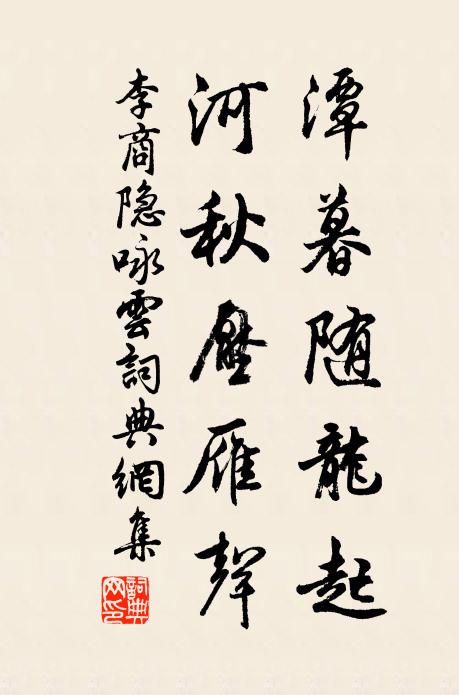 潭暮随龍起
河秋壓雁聲
李商隐咏雲詞典網集
詞典
网印